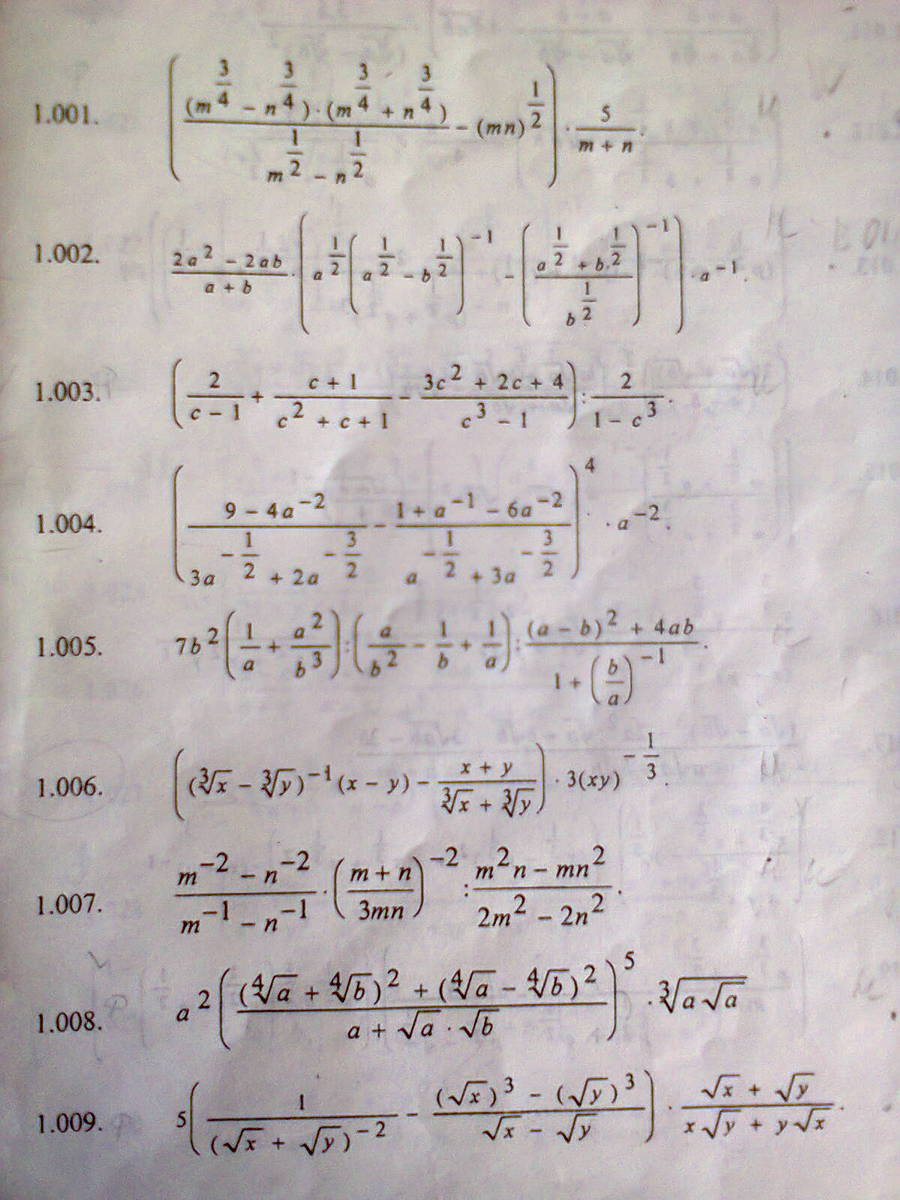 1.001. ((m^(3/4) − n^(3/4)) · (m^(3/4) + n^(3/4)) / (m^(1/2) − n^(1/2)) − (mn)^(1/2)) · 5/(m + n).
1.002. (2a^2 − 2ab)/(a + b) · (a^(1/2) (a^(1/2) − b^(1/2))^(−1) − ((a^(1/2) + b^(1/2))/b^(1/2))^(−1)) · a^(−1).
1.003. (2/(c − 1) + (c + 1)/(c^2 + c + 1) − (3c^2 + 2c + 4)/(c^3 − 1)) : 2/(1 − c^3).
1.004. ((9 − 4a^(−2))/(3a^(−1/2) + 2a^(−3/2)) − (1 + a^(−1) − 6a^(−2))/(a^(−1/2) + 3a^(−3/2)))^4 · a^(−2).
1.005. 7b^2 (1/a + a^2/b^3) : (a/b^2 − 1/b + 1/a) : ((a − b)^2 + 4ab)/(1 + (b/a)^(−1)).
1.006. ((∛x − ∛y)^(−1) (x − y) − (x + y)/(∛x + ∛y)) · 3(xy)^(−1/3).
1.007. (m^(−2) − n^(−2))/(m^(−1) − n^(−1)) · ((m + n)/3mn)^(−2) : (m^2n − mn^2)/(2m^2 − 2n^2).
1.008. a^2 (((∜a + ∜b)^2 + (∜a − ∜b)^2)/(a + √a · √b))^5 · ∛(a√a)
1.009. 5(1/(√x + √y)^(−2) − ((√x)^3 − (√y)^3)/(√x − √y)) · (√x + √y)/(x√y + y√x).